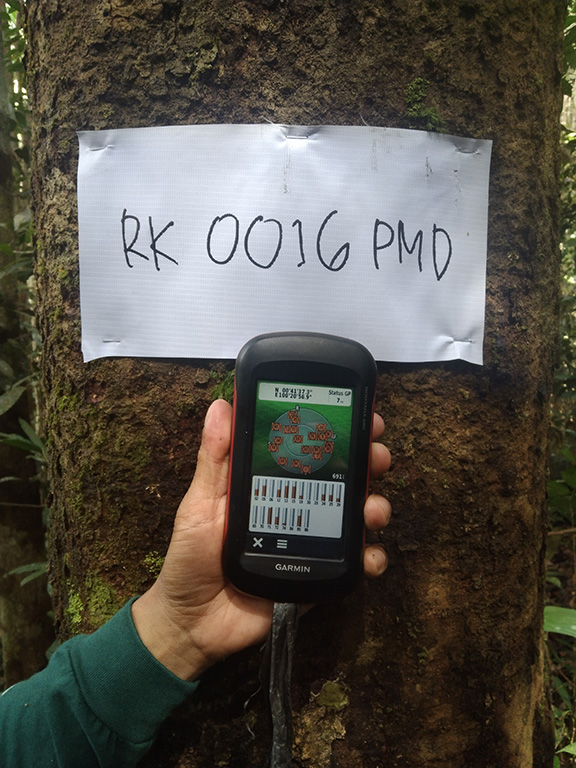 RK 0016 PMD
N 00°41'17.3"
E100°20'56.9"
Status GP
7m
691
GARMIN